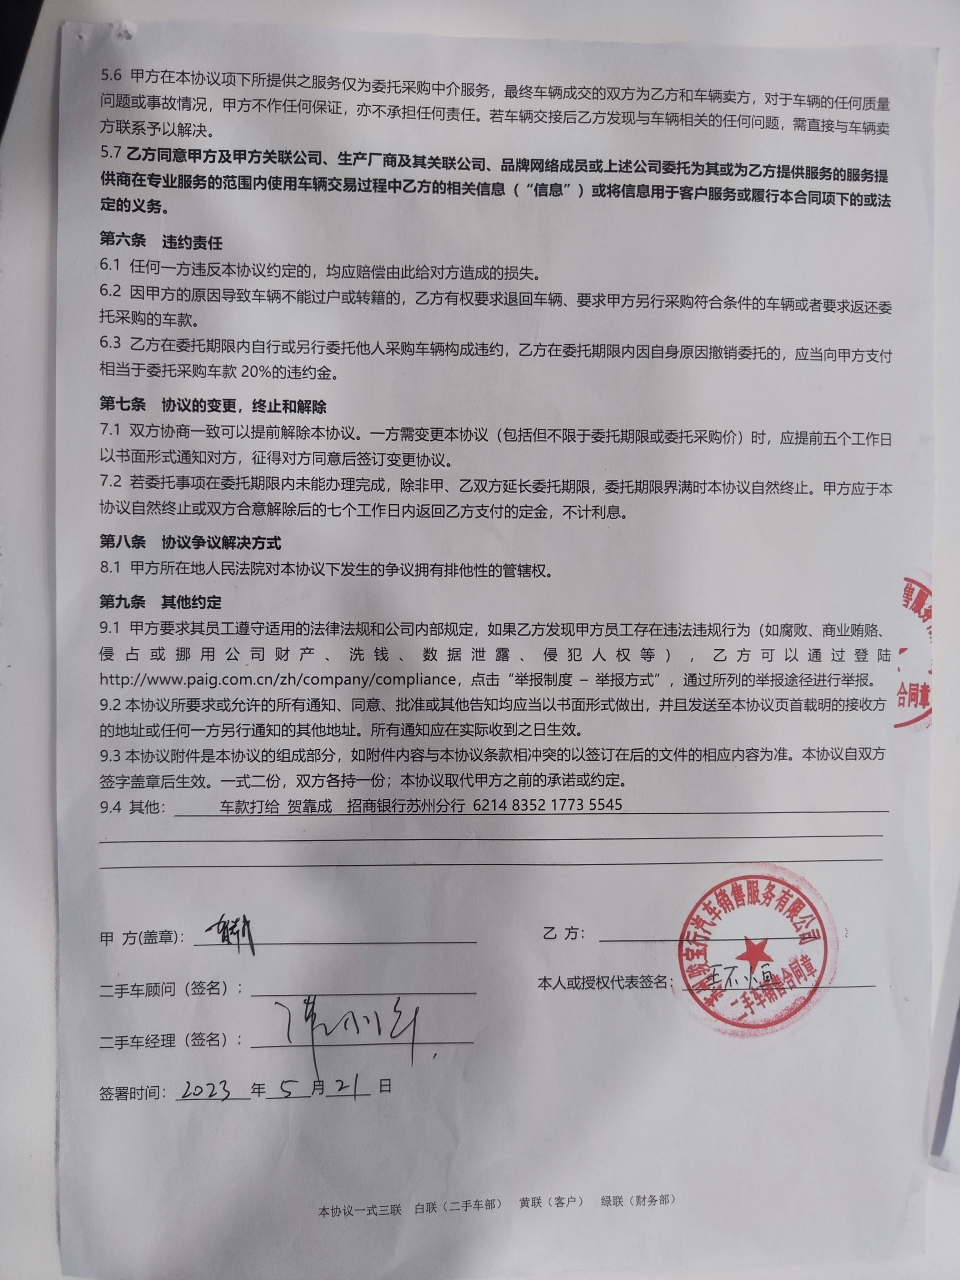 5.6 甲方在本协议项下所提供之服务仅为委托采购中介服务，最终车辆成交的双方为乙方和车辆卖方，对于车辆的任何质量
问题或事故情况，甲方不作任何保证，亦不承担任何责任。若车辆交接后乙方发现与车辆相关的任何问题，需直接与车辆卖
方联系予以解决。
5.7 乙方同意甲方及甲方关联公司、生产厂商及其关联公司、品牌网络成员或上述公司委托为其或为乙方提供服务的服务提
供商在专业服务的范围内使用车辆交易过程中乙方的相关信息（“信息”）或将信息用于客户服务或履行本合同项下的或法
定的义务。
第六条 违约责任
6.1 任何一方违反本协议约定的，均应赔偿由此给对方造成的损失。
6.2 因甲方的原因导致车辆不能过户或转籍的，乙方有权要求退回车辆、要求甲方另行采购符合条件的车辆或者要求返还委
托采购的车款。
6.3 乙方在委托期限内自行或另行委托他人采购车辆构成违约，乙方在委托期限内因自身原因撤销委托的，应当向甲方支付
相当于委托采购车款 20%的违约金。
第七条 协议的变更，终止和解除
7.1 双方协商一致可以提前解除本协议。一方需变更本协议（包括但不限于委托期限或委托采购价）时，应提前五个工作日
以书面形式通知对方，征得对方同意后签订变更协议。
7.2 若委托事项在委托期限内未能办理完成，除非甲、乙双方延长委托期限，委托期限界满时本协议自然终止。甲方应于本
协议自然终止或双方合意解除后的七个工作日内返回乙方支付的定金，不计利息。
第八条 协议争议解决方式
8.1 甲方所在地人民法院对本协议下发生的争议拥有排他性的管辖权。
第九条 其他约定
9.1 甲方要求其员工遵守适用的法律法规和公司内部规定，如果乙方发现甲方员工存在违法违规行为（如腐败、商业贿赂、
侵占或挪用公司财产、洗钱、数据泄露、侵犯人权等），乙方可以通过登陆
http://www.paig.com.cn/zh/company/compliance，点击“举报制度 – 举报方式”，通过所列的举报途径进行举报。
9.2 本协议所要求或允许的所有通知、同意、批准或其他告知均应当以书面形式做出，并且发送至本协议页首载明的接收方
的地址或任何一方另行通知的其他地址。所有通知应在实际收到之日生效。
9.3 本协议附件是本协议的组成部分，如附件内容与本协议条款相冲突的以签订在后的文件的相应内容为准。本协议自双方
签字盖章后生效。一式二份，双方各持一份；本协议取代甲方之前的承诺或约定。
9.4 其他： 车款打给 贺靠成 招商银行苏州分行 6214 8352 1773 5545
售服务
合同章
甲 方(盖章)：
乙 方：
宝行汽车销售服务有限公司
二手车销售合同章
二手车顾问（签名）：
本人或授权代表签名：
二手车经理（签名）：
签署时间：2023年5月21日
本协议一式三联 白联（二手车部） 黄联（客户） 绿联（财务部）